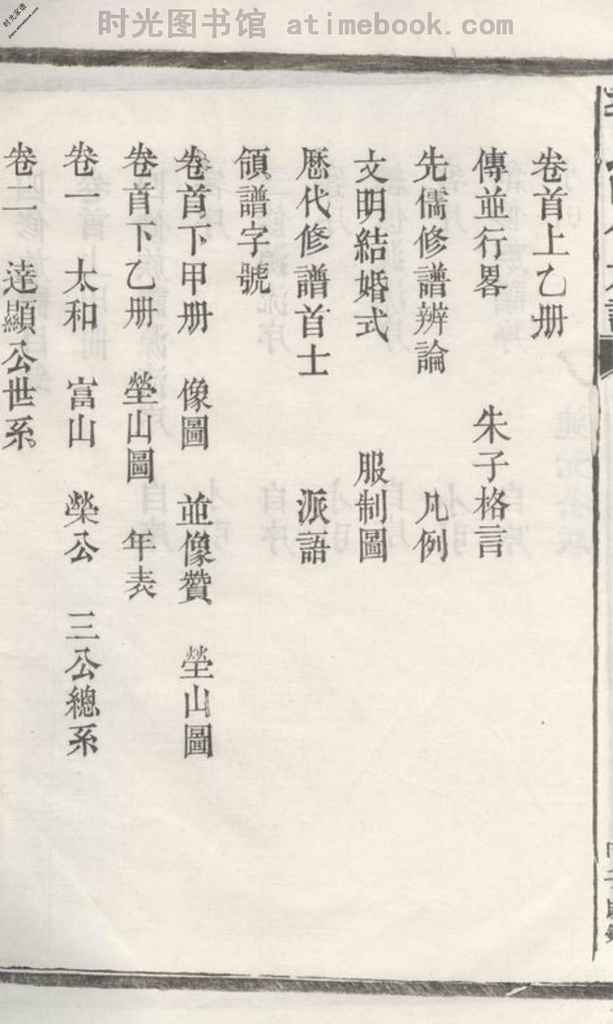 时光图书馆 atimebook.com
卷首上乙册
傳並行畧 朱子格言
先儒修譜辨論 凡例
文明結婚式 服制圖
歷代修譜首士 派語
領譜字號
卷首下甲册 像圖 並像贊 塋山圖
卷首下乙册 塋山圖 年表
卷一 太和 富山 榮公 三公總系
卷二 達顯公世系